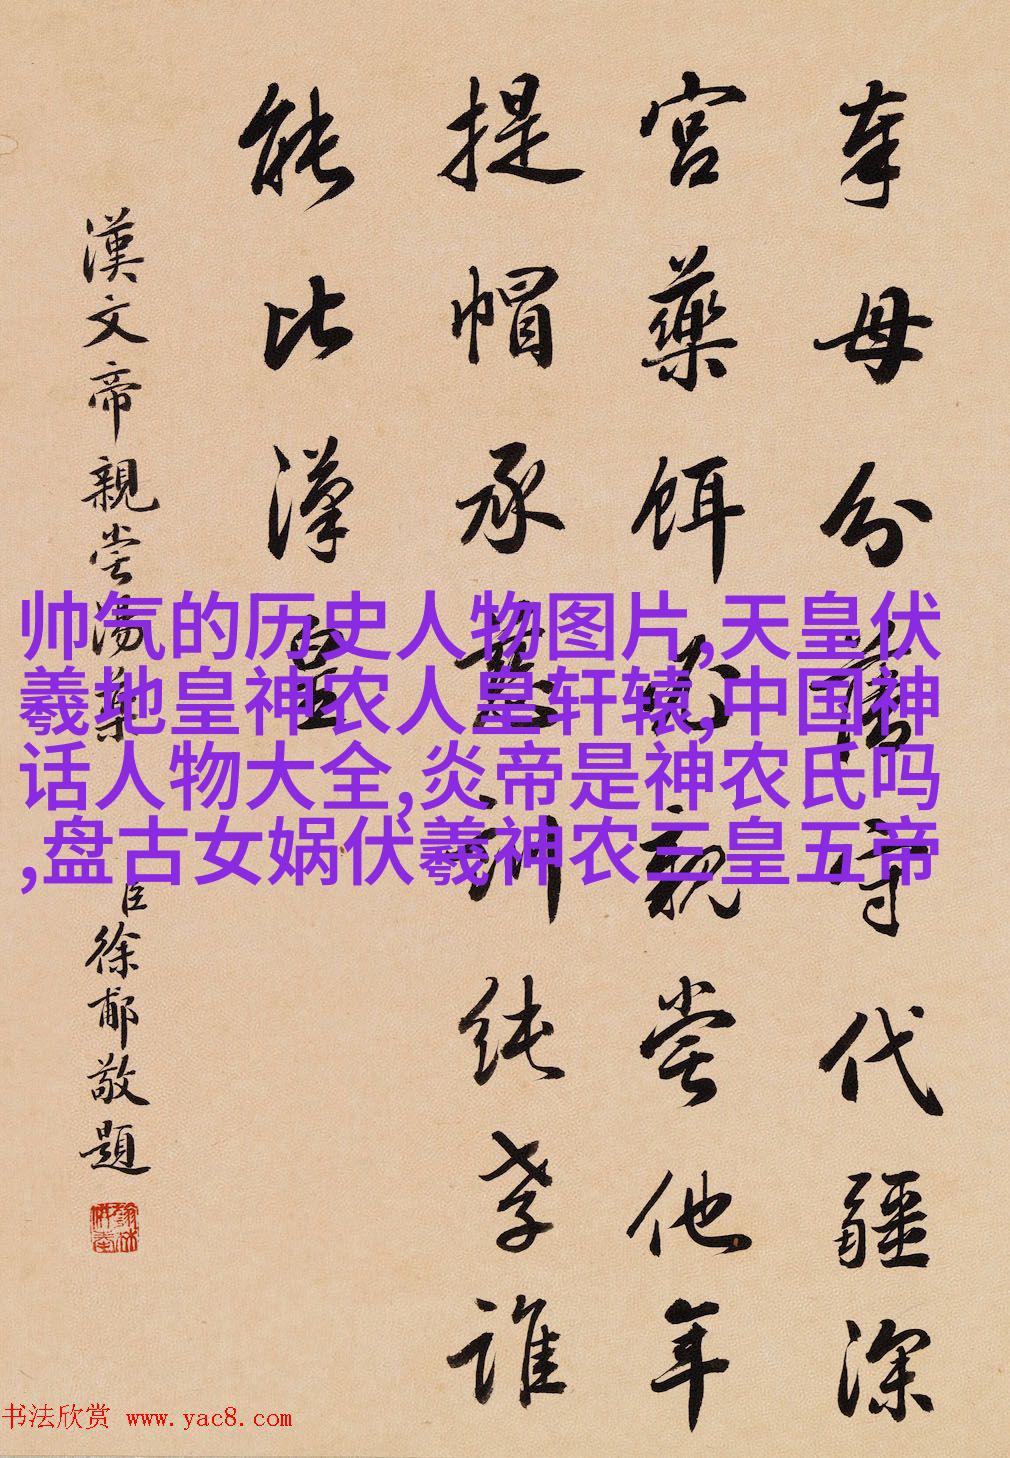 奉母分藩守代疆深
宮藥餌必親嘗他年
提帽承慈訓純孝誰
能比漢皇
漢文帝親嘗湯藥
臣徐郙敬題
帅气的历史人物图片,天皇伏
羲地皇神农人皇轩辕,中国神
话人物大全,炎帝是神农氏吗
,盘古女娲伏羲神农三皇五帝
书法欣赏 www.yac8.com